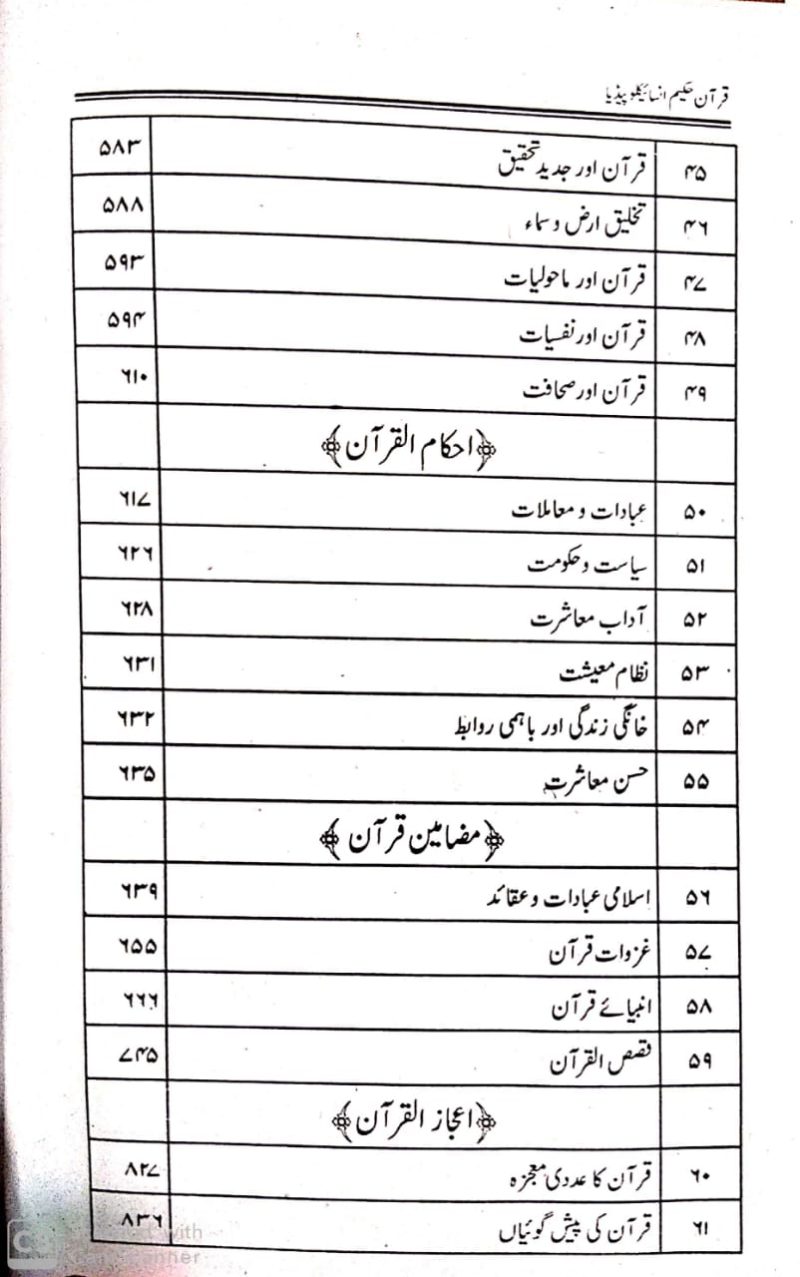 قرآن حکیم انسائیکلوپیڈیا
۴۵ قرآن اور جدید تحقیق ۵۸۳
۴۶ تخلیق ارض و سماء ۵۸۸
۴۷ قرآن اور ماحولیات ۵۹۳
۴۸ قرآن اور نفسیات ۵۹۴
۴۹ قرآن اور صحافت ۶۱۰
﴿احکام القرآن﴾
۵۰ عبادات و معاملات ۶۱۷
۵۱ سیاست و حکومت ۶۲۶
۵۲ آداب معاشرت ۶۲۸
۵۳ نظام معیشت ۶۳۱
۵۴ خانگی زندگی اور باہمی روابط ۶۳۲
۵۵ حسن معاشرت ۶۳۵
﴿مضامین قرآن﴾
۵۶ اسلامی عبادات و عقائد ۶۳۹
۵۷ غزوات قرآن ۶۵۵
۵۸ انبیائے قرآن ۶۶۶
۵۹ قصص القرآن ۷۴۵
﴿اعجاز القرآن﴾
۶۰ قرآن کا عددی معجزہ ۸۲۷
۶۱ قرآن کی پیش گوئیاں ۸۳۶
with